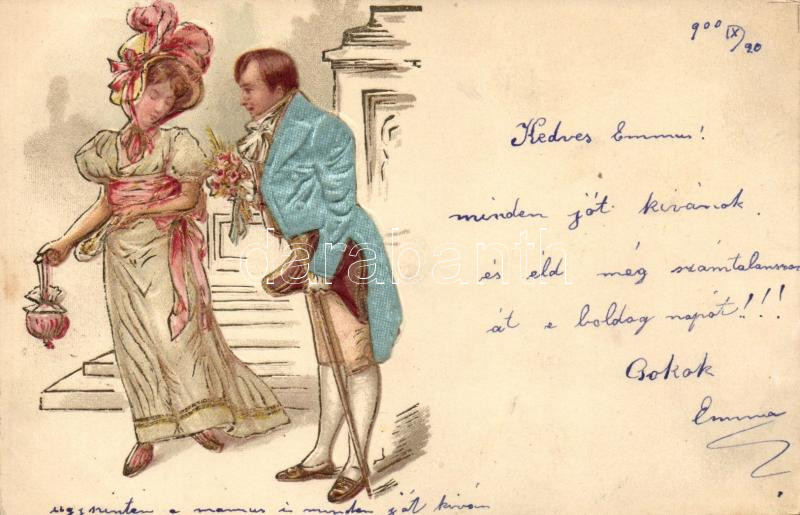 900 IX/20
Kedves Emmus!
minden jót kivánok
és éld még számtalanszor
át e boldog napot!!!
Csokok
Emma
ugyszinten a mamus is minden jót kiván
darabanth